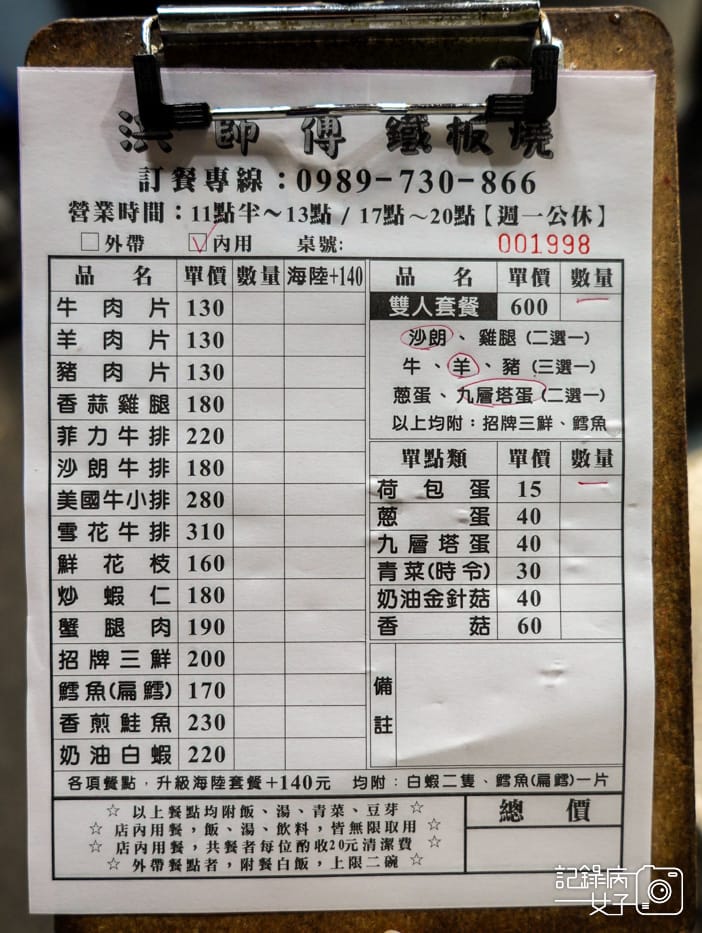 洪師傅 鐵板燒
訂餐專線：0989-730-866
營業時間：11點半～13點 / 17點～20點【週一公休】
□外帶 ☑內用 桌號: 001998
品名 單價 數量 海陸+140
牛肉片 130
羊肉片 130
豬肉片 130
香蒜雞腿 180
菲力牛排 220
沙朗牛排 180
美國牛小排 280
雪花牛排 310
鮮花枝 160
炒蝦仁 180
蟹腿肉 190
招牌三鮮 200
鱈魚(扁鱈) 170
香煎鮭魚 230
奶油白蝦 220
品名 單價 數量
雙人套餐 600 一
沙朗、雞腿(二選一)
牛、羊、豬(三選一)
蔥蛋、九層塔蛋(二選一)
以上均附：招牌三鮮、鱈魚
單點類 單價 數量
荷包蛋 15 一
蔥蛋 40
九層塔蛋 40
青菜(時令) 30
奶油金針菇 40
香菇 60
備註
各項餐點，升級海陸套餐+140元 均附：白蝦二隻、鱈魚(扁鱈)一片
☆ 以上餐點均附飯、湯、青菜、豆芽 ☆
☆ 店內用餐，飯、湯、飲料，皆無限取用 ☆
☆ 店內用餐，共餐者每位酌收20元清潔費 ☆
☆ 外帶餐點者，附餐白飯，上限二碗 ☆
總價
記錄病
女子